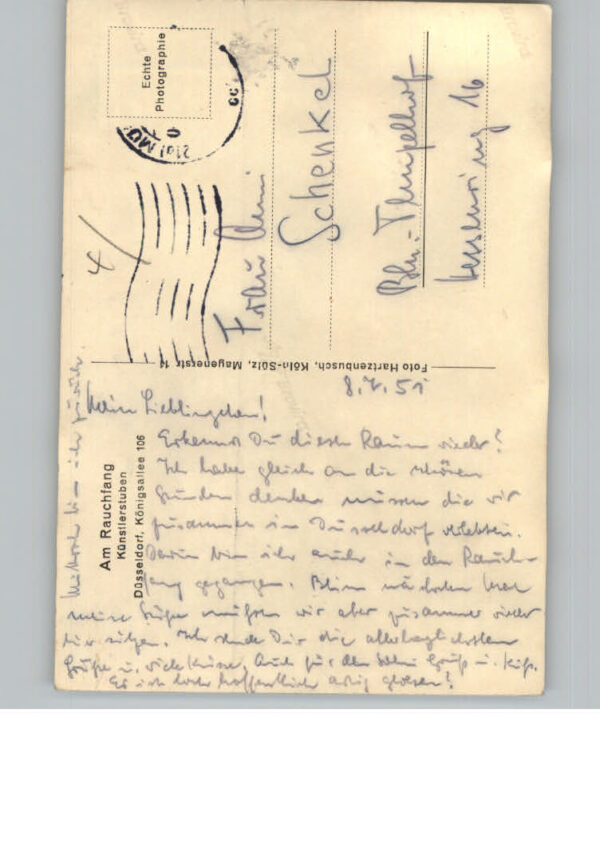 Echte
Photographie
Frau Anni
Schenkel
Bln.-Tempelhof
16
Foto Hartzenbusch, Köln-Sülz, Mayenerstr 1
Am Rauchfang
Künstlerstuben
Düsseldorf, Königsallee 106
8.5.51
Mein Lieblingchen!
Erkennst Du diesen Raum wieder?
Ich habe gleich an die schönen
Stunden denken müssen die wir
zusammen in Düsseldorf verlebten.
Darum bin ich auch in den Rauch-
fang gegangen. Beim nächsten Mal
meine Süße müssen wir aber zusammen wieder
hier sitzen. Ich sende Dir die allerherzlichsten
Grüße u. viele Küsse. Auch für den Gruß u. Kuß.
Er ist doch hoffentlich artig gewesen!
Mittwoch bin ich zurück.